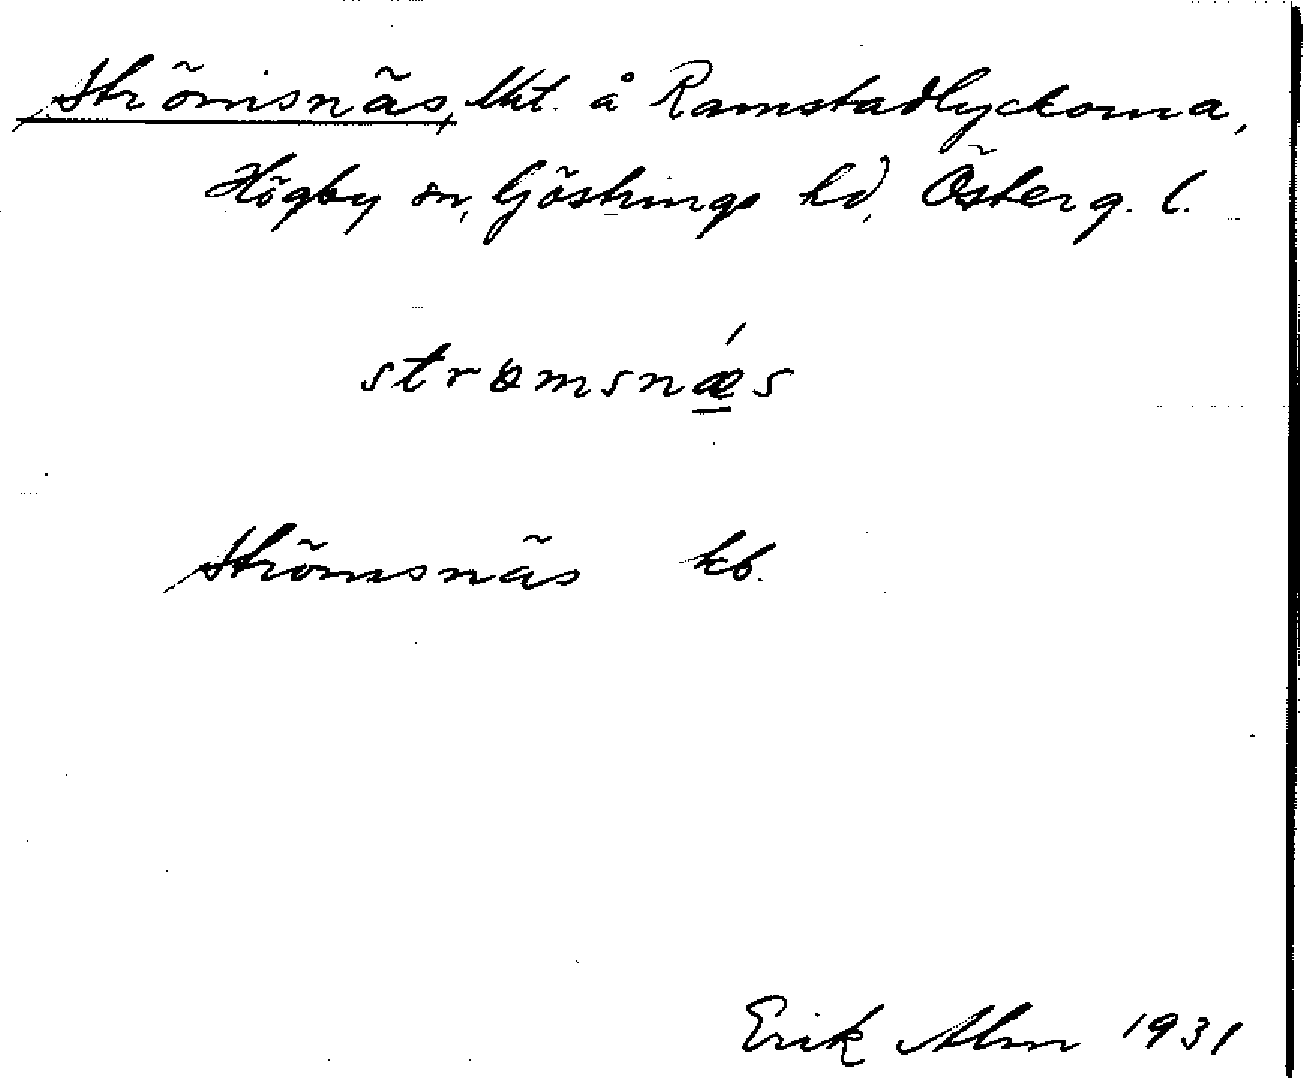 Strömsnäs, lht. å Ramstadlyckorna,
Högby sn, Göstrings hd, Österg. l.
strømsnǽs
Strömsnäs kb.
Erik Alm 1931